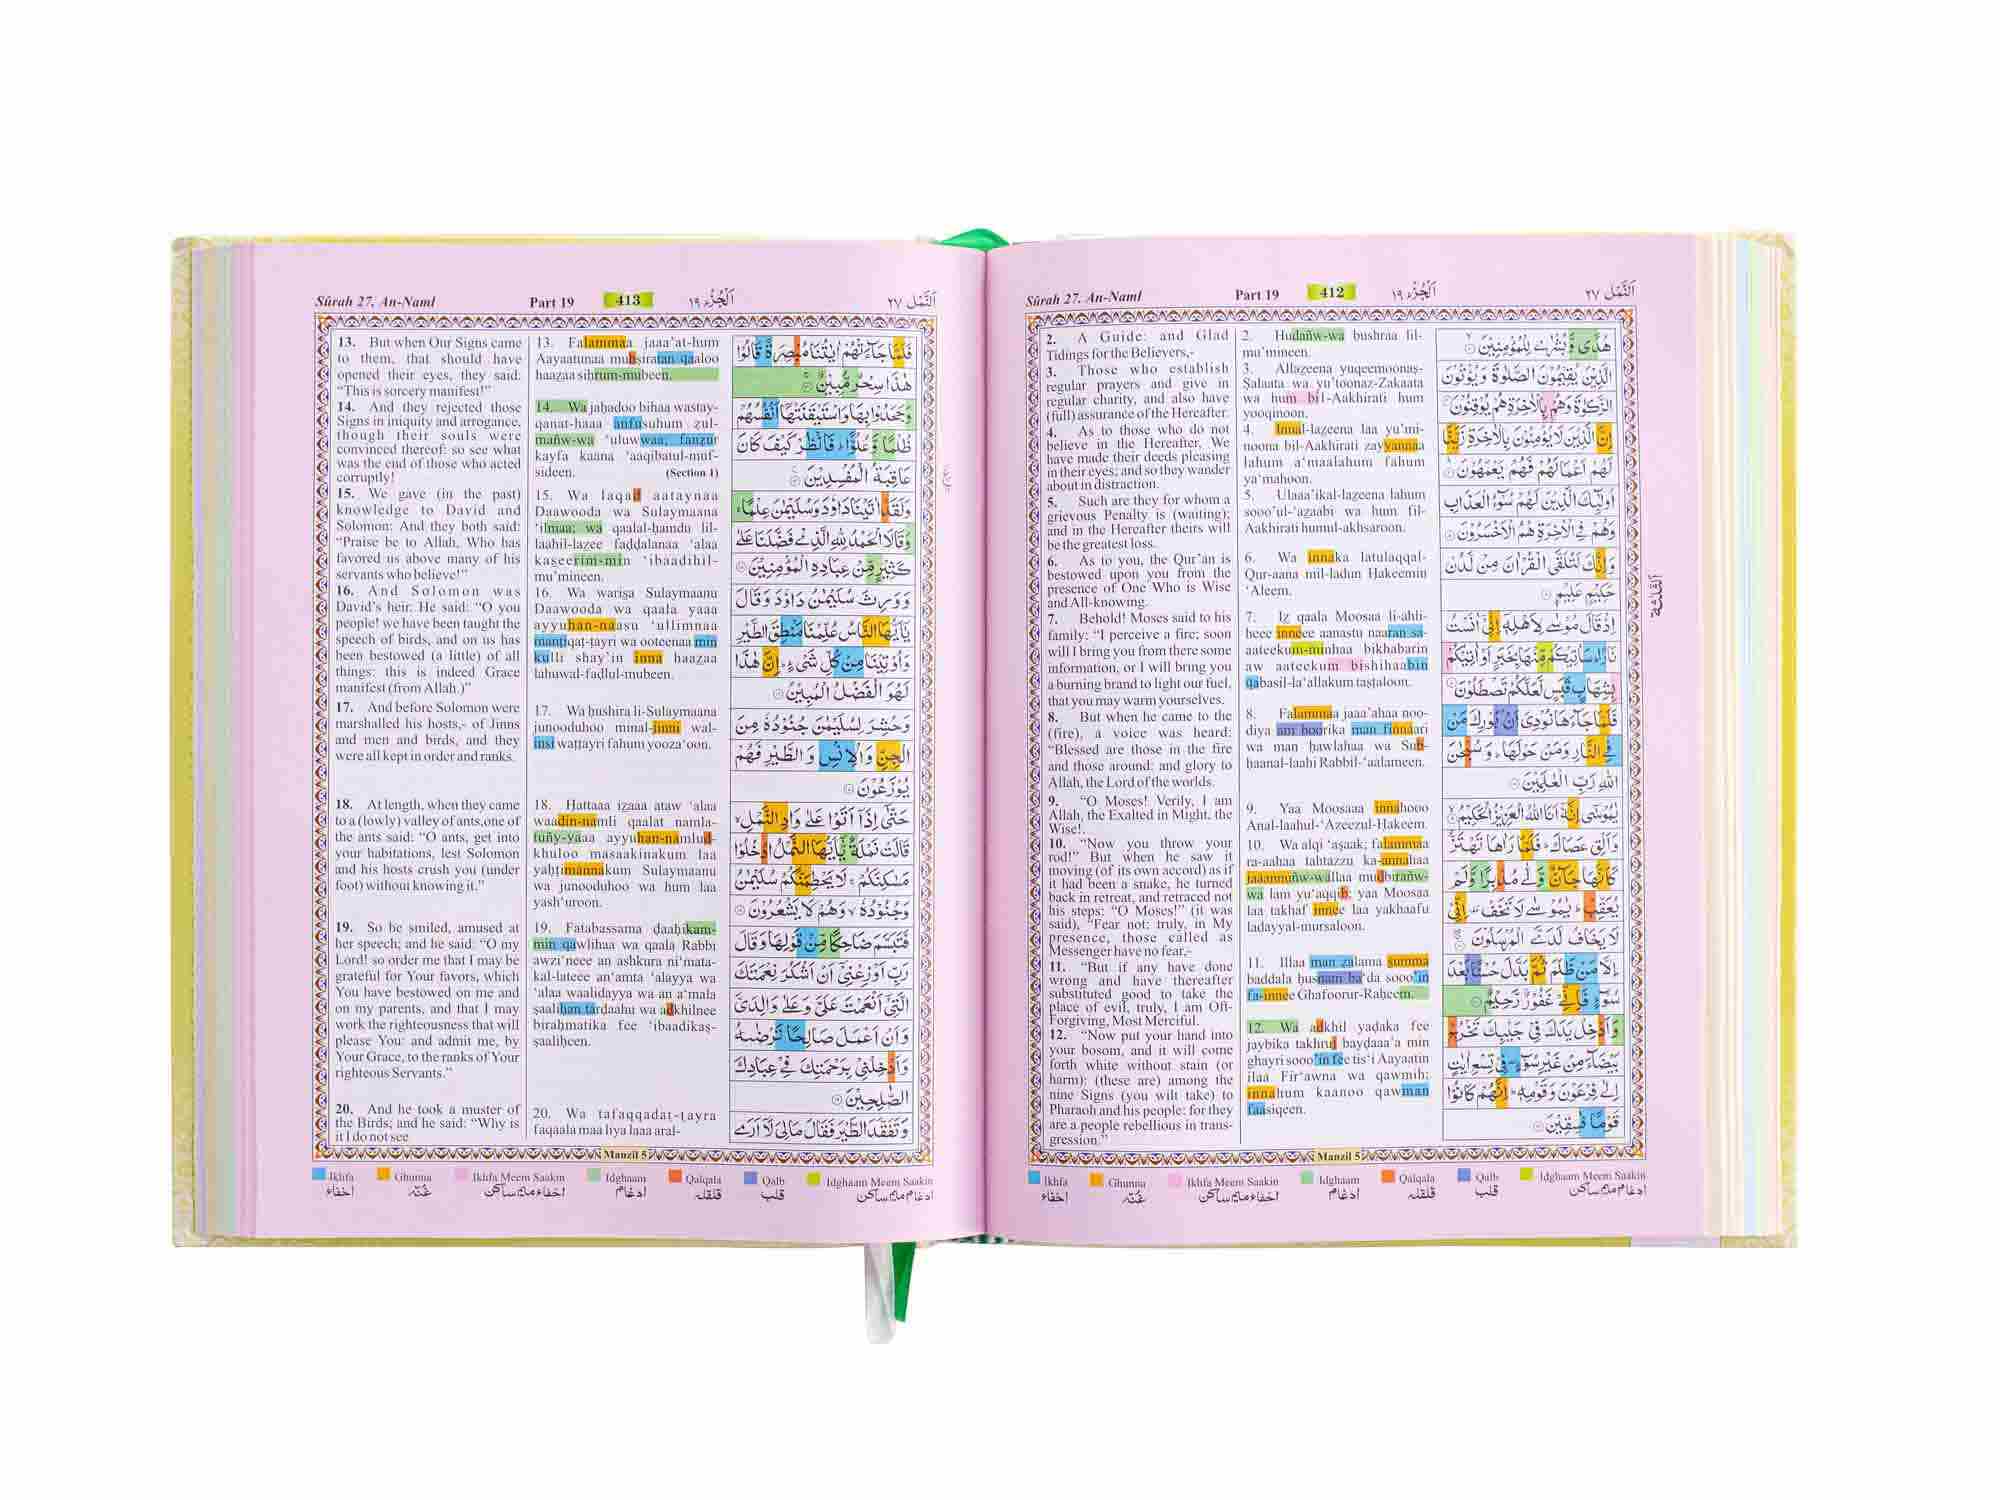 Sûrah 27. An-Naml Part 19 412 اَلْجُزْءُ ١٩ اَلنَّمْل ٢٧
2. A Guide: and Glad
Tidings for the Believers,-
3. Those who establish
regular prayers and give in
regular charity, and also have
(full) assurance of the Hereafter.
4. As to those who do not
believe in the Hereafter, We
have made their deeds pleasing
in their eyes; and so they wander
about in distraction.
5. Such are they for whom a
grievous Penalty is (waiting);
and in the Hereafter theirs will
be the greatest loss.
6. As to you, the Qur’ân is
bestowed upon you from the
presence of One Who is Wise
and All-knowing.
7. Behold! Moses said to his
family: “I perceive a fire; soon
will I bring you from there some
information, or I will bring you
a burning brand to light our fuel,
that you may warm yourselves.
8. But when he came to the
(fire), a voice was heard:
“Blessed are those in the fire
and those around: and glory to
Allah, the Lord of the worlds.
9. “O Moses! Verily, I am
Allah, the Exalted in Might, the
Wise!.
10. “Now you throw your
rod!” But when he saw it
moving (of its own accord) as if
it had been a snake, he turned
back in retreat, and retraced not
his steps: “O Moses!” (it was
said), “Fear not: truly, in My
presence, those called as
Messenger have no fear,-
11. “But if any have done
wrong and have thereafter
substituted good to take the
place of evil, truly, I am Oft-
Forgiving, Most Merciful.
12. “Now put your hand into
your bosom, and it will come
forth white without stain (or
harm): (these are) among the
nine Signs (you will take) to
Pharaoh and his people: for they
are a people rebellious in trans-
gression.”
2. Hudañw-wa bushraa lil-
mu’mineen.
3. Allazeena yuqeemoonaṣ-
Ṣalaata wa yu’toonaz-Zakaata
wa hum bil-Aakhirati hum
yooqinoon.
4. Innal-lazeena laa yu’mi-
noona bil-Aakhirati zayyannaa
lahum a‘maalahum fahum
ya‘mahoon.
5. Ulaaa’ikal-lazeena lahum
sooo’ul-‘aẓaabi wa hum fil-
Aakhirati humul-akhsaroon.
6. Wa innaka latulaqqal-
Qur-aana mil-ladun Ḥakeemin
‘Aleem.
7. Iẓ qaala Moosaa li-ahli-
heee inneee aanastu naaran sa-
aateekum-minhaa bikhabarin
aw aateekum bishihaabin
qabasil-la‘allakum taṣṭaloon.
8. Falammaa jaaa’ahaa noo-
diya am boorika man finnaari
wa man ḥawlahaa wa Sub-
ḥaanal-laahi Rabbil-‘aalameen.
9. Yaa Moosaaa innahooo
Anal-laahul-‘Azeezul-Ḥakeem.
10. Wa alqi ‘aṣaak; falammaa
ra-aahaa tahtazzu ka-annahaa
jaaannuñw-wallaa mudbirañw-
wa lam yu‘aqqib; yaa Moosaa
laa takhaf innee laa yakhaafu
ladayyal-mursaloon.
11. Illaa man ẓalama ṣumma
baddala ḥusnam ba‘da sooo’in
fa-innee Ghafoorur-Raḥeem.
12. Wa adkhil yadaka fee
jaybika takhruj bayḍaaa’a min
ghayri sooo’in fee tis‘i Aayaatin
ilaa Fir‘awna wa qawmih;
innahum kaanoo qawman
faasiqeen.
هُدًى وَّبُشْرٰى لِلْمُؤْمِنِيْنَ
الَّذِيْنَ يُقِيْمُوْنَ الصَّلٰوةَ وَيُؤْتُوْنَ
الزَّكٰوةَ وَهُمْ بِالْاٰخِرَةِ هُمْ يُوْقِنُوْنَ
اِنَّ الَّذِيْنَ لَا يُؤْمِنُوْنَ بِالْاٰخِرَةِ زَيَّنَّا
لَهُمْ اَعْمَالَهُمْ فَهُمْ يَعْمَهُوْنَ
اُولٰٓئِكَ الَّذِيْنَ لَهُمْ سُوْٓءُ الْعَذَابِ
وَهُمْ فِي الْاٰخِرَةِ هُمُ الْاَخْسَرُوْنَ
وَاِنَّكَ لَتُلَقَّى الْقُرْاٰنَ مِنْ لَّدُنْ
حَكِيْمٍ عَلِيْمٍ
اِذْ قَالَ مُوْسٰى لِاَهْلِهٖٓ اِنِّيْٓ اٰنَسْتُ
نَارًا ؕ سَاٰتِيْكُمْ مِّنْهَا بِخَبَرٍ اَوْ اٰتِيْكُمْ
بِشِهَابٍ قَبَسٍ لَّعَلَّكُمْ تَصْطَلُوْنَ
فَلَمَّا جَآءَهَا نُوْدِيَ اَنْۢ بُوْرِكَ مَنْ
فِي النَّارِ وَمَنْ حَوْلَهَا ؕ وَسُبْحٰنَ
اللّٰهِ رَبِّ الْعٰلَمِيْنَ
يٰمُوْسٰٓى اِنَّهٗٓ اَنَا اللّٰهُ الْعَزِيْزُ الْحَكِيْمُ
وَاَلْقِ عَصَاكَ ؕ فَلَمَّا رَاٰهَا تَهْتَزُّ
كَاَنَّهَا جَآنٌّ وَّلّٰى مُدْبِرًا وَّلَمْ
يُعَقِّبْ ؕ يٰمُوْسٰى لَا تَخَفْ ۫ اِنِّيْ
لَا يَخَافُ لَدَيَّ الْمُرْسَلُوْنَ
اِلَّا مَنْ ظَلَمَ ثُمَّ بَدَّلَ حُسْنًاۢ بَعْدَ
سُوْٓءٍ فَاِنِّيْ غَفُوْرٌ رَّحِيْمٌ
وَاَدْخِلْ يَدَكَ فِيْ جَيْبِكَ تَخْرُجْ
بَيْضَآءَ مِنْ غَيْرِ سُوْٓءٍ ۫ فِيْ تِسْعِ اٰيٰتٍ
اِلٰى فِرْعَوْنَ وَقَوْمِهٖ ؕ اِنَّهُمْ كَانُوْا
قَوْمًا فٰسِقِيْنَ
الثلٰثة
Manzil 5
Ikhfa Ghunna Ikhfa Meem Saakin Idghaam Qalqala Qalb Idghaam Meem Saakin
اخفاء غُنّہ اخفاء میم ساکن ادغام قلقلہ قلب ادغام میم ساکن
Sûrah 27. An-Naml Part 19 413 اَلْجُزْءُ ١٩ اَلنَّمْل ٢٧
13. But when Our Signs came
to them, that should have
opened their eyes, they said:
“This is sorcery manifest!”
14. And they rejected those
Signs in iniquity and arrogance,
though their souls were
convinced thereof: so see what
was the end of those who acted
corruptly!
15. We gave (in the past)
knowledge to David and
Solomon: And they both said:
“Praise be to Allah, Who has
favored us above many of his
servants who believe!”
16. And Solomon was
David’s heir. He said: “O you
people! we have been taught the
speech of birds, and on us has
been bestowed (a little) of all
things: this is indeed Grace
manifest (from Allah.)”
17. And before Solomon were
marshalled his hosts,- of Jinns
and men and birds, and they
were all kept in order and ranks.
18. At length, when they came
to a (lowly) valley of ants,one of
the ants said: “O ants, get into
your habitations, lest Solomon
and his hosts crush you (under
foot) without knowing it.”
19. So he smiled, amused at
her speech; and he said: “O my
Lord! so order me that I may be
grateful for Your favors, which
You have bestowed on me and
on my parents, and that I may
work the righteousness that will
please You: and admit me, by
Your Grace, to the ranks of Your
righteous Servants.”
20. And he took a muster of
the Birds; and he said: “Why is
it I do not see
13. Falammaa jaaa’at-hum
Aayaatunaa mubṣiratan qaaloo
haaẓaa siḥrum-mubeen.
14. Wa jaḥadoo bihaa wastay-
qanat-haaa anfusuhum ẓul-
mañw-wa ‘uluwwaa; fanẓur
kayfa kaana ‘aaqibatul-muf-
sideen. (Section 1)
15. Wa laqad aataynaa
Daawooda wa Sulaymaana
‘ilmaa; wa qaalal-ḥamdu lil-
laahil-laẓee faḍḍalanaa ‘alaa
kaṣeerim-min ‘ibaadihil-
mu’mineen.
16. Wa wariṣa Sulaymaanu
Daawooda wa qaala yaaa
ayyuhan-naasu ‘ullimnaa
manṭiqaṭ-ṭayri wa ooteenaa min
kulli shay’in inna haaẓaa
lahuwal-faḍlul-mubeen.
17. Wa ḥushira li-Sulaymaana
junooduhoo minal-jinni wal-
insi waṭṭayri fahum yooza‘oon.
18. Ḥattaaa iẓaaa ataw ‘alaa
waadin-namli qaalat namla-
tuñy-yaaa ayyuhan-namlud-
khuloo masaakinakum laa
yaḥṭimannakum Sulaymaanu
wa junooduhoo wa hum laa
yash‘uroon.
19. Fatabassama ḍaaḥikam-
min qawlihaa wa qaala Rabbi
awzi‘neee an ashkura ni‘mata-
kal-lateee an‘amta ‘alayya wa
‘alaa waalidayya wa an a‘mala
ṣaaliḥan tarḍaahu wa adkhilnee
biraḥmatika fee ‘ibaadikaṣ-
ṣaaliḥeen.
20. Wa tafaqqadaṭ-ṭayra
faqaala maa liya laaa aral-
فَلَمَّا جَآءَتْهُمْ اٰيٰتُنَا مُبْصِرَةً قَالُوْا
هٰذَا سِحْرٌ مُّبِيْنٌ
وَجَحَدُوْا بِهَا وَاسْتَيْقَنَتْهَآ اَنْفُسُهُمْ
ظُلْمًا وَّعُلُوًّا ؕ فَانْظُرْ كَيْفَ كَانَ
عَاقِبَةُ الْمُفْسِدِيْنَ
وَلَقَدْ اٰتَيْنَا دَاوٗدَ وَسُلَيْمٰنَ عِلْمًا ۚ
وَقَالَا الْحَمْدُ لِلّٰهِ الَّذِيْ فَضَّلَنَا عَلٰى
كَثِيْرٍ مِّنْ عِبَادِهِ الْمُؤْمِنِيْنَ
وَوَرِثَ سُلَيْمٰنُ دَاوٗدَ وَقَالَ
يٰٓاَيُّهَا النَّاسُ عُلِّمْنَا مَنْطِقَ الطَّيْرِ
وَاُوْتِيْنَا مِنْ كُلِّ شَيْءٍ ؕ اِنَّ هٰذَا
لَهُوَ الْفَضْلُ الْمُبِيْنُ
وَحُشِرَ لِسُلَيْمٰنَ جُنُوْدُهٗ مِنَ
الْجِنِّ وَالْاِنْسِ وَالطَّيْرِ فَهُمْ
يُوْزَعُوْنَ
حَتّٰٓى اِذَآ اَتَوْا عَلٰى وَادِ النَّمْلِ ۙ
قَالَتْ نَمْلَةٌ يّٰٓاَيُّهَا النَّمْلُ ادْخُلُوْا
مَسٰكِنَكُمْ ۚ لَا يَحْطِمَنَّكُمْ سُلَيْمٰنُ
وَجُنُوْدُهٗ ۙ وَهُمْ لَا يَشْعُرُوْنَ
فَتَبَسَّمَ ضَاحِكًا مِّنْ قَوْلِهَا وَقَالَ
رَبِّ اَوْزِعْنِيْٓ اَنْ اَشْكُرَ نِعْمَتَكَ
الَّتِيْٓ اَنْعَمْتَ عَلَيَّ وَعَلٰى وَالِدَيَّ
وَاَنْ اَعْمَلَ صَالِحًا تَرْضٰىهُ
وَاَدْخِلْنِيْ بِرَحْمَتِكَ فِيْ عِبَادِكَ
الصّٰلِحِيْنَ
وَتَفَقَّدَ الطَّيْرَ فَقَالَ مَا لِيَ لَآ اَرَى
Manzil 5
Ikhfa Ghunna Ikhfa Meem Saakin Idghaam Qalqala Qalb Idghaam Meem Saakin
اخفاء غُنّہ اخفاء میم ساکن ادغام قلقلہ قلب ادغام میم ساکن